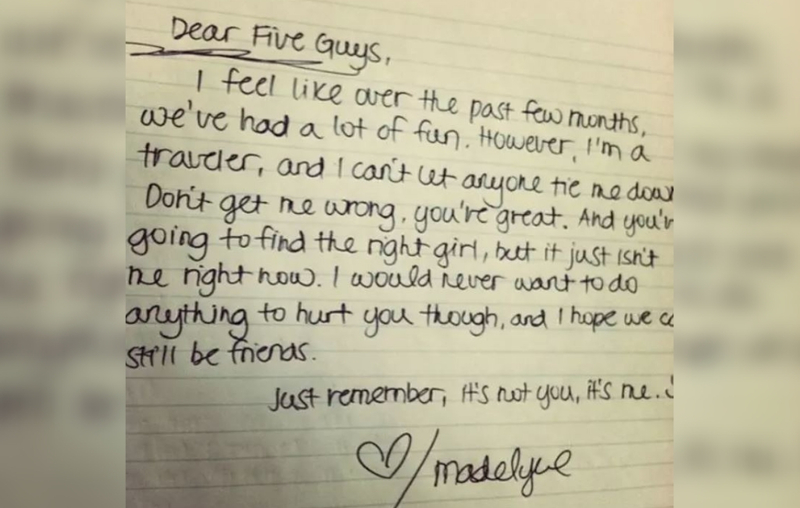 Dear Five Guys,
I feel like over the past few months,
we've had a lot of fun. However, I'm a
traveler, and I can't let anyone tie me down
Don't get me wrong, you're great. And you'r
going to find the right girl, but it just isn't
me right now. I would never want to do
anything to hurt you though, and I hope we
still be friends.
Just remember, it's not you, it's me.
♡/madelyne